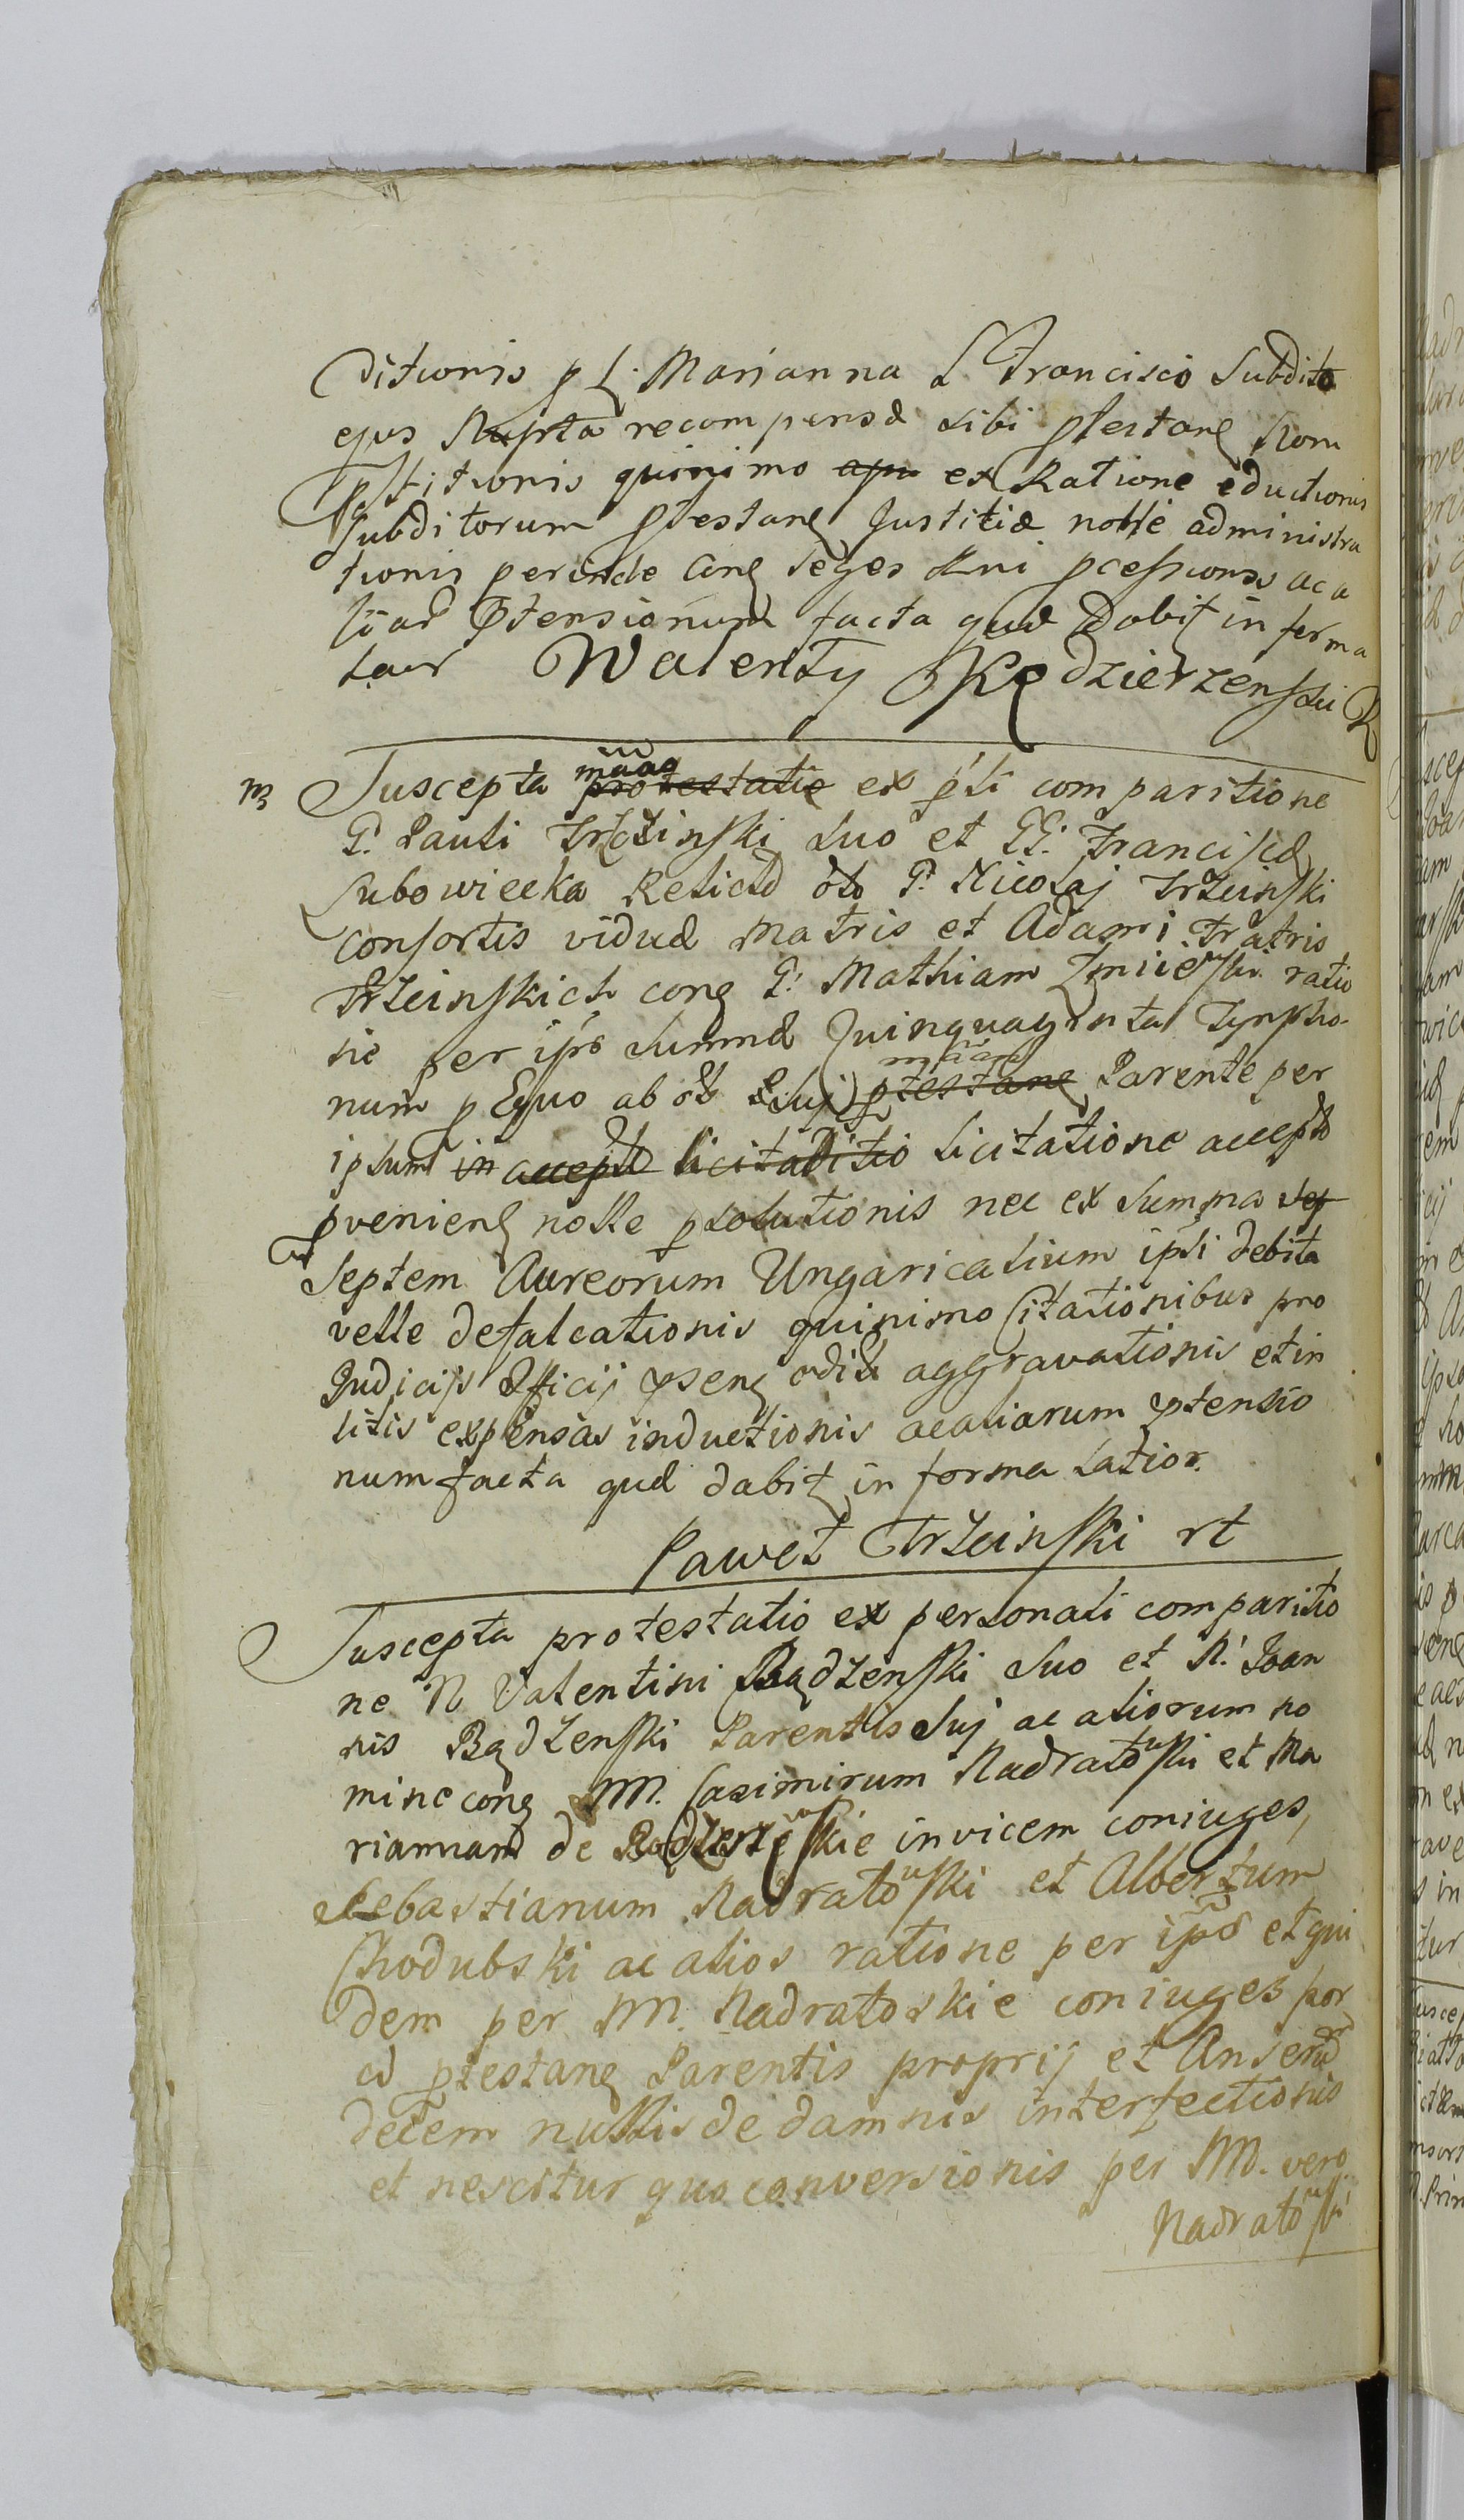 ditionis p L. Marianna L. Francisco Subdito
ejus Nupta recompensæ sibi ptestanę Non
pstitionis quinimo apu ex Ratione eductionis
Subditorum ptestanę Justitiæ nolle administra
tionis perinde conę leges Rni pcessionis ac a
liar ptensionum facta quæ dabit in forma
latior Walenty Kędzierzenski
m Suscepta protestatio mãao ex p̃li comparitione
G. Pauli Trzcinski suo et GG. Francisca
Lubowiecka Relictæ olo G. Nicolaj Trzcinski
consortis viduæ Matris et Adami Fratris
Trzcinskich conę G. Mathiam Zmiiewski ratio
ne per ips̃ Summæ Quinquaginta Tynpho-
num p Equo ab olo Suj ptestanę mãan Parente per
ipsum in accepto licitatitio licitatione accepto
pvenienę nolle psolutionis nec ex Summa sep
Septem Aureorum Ungaricalium ipsi debita
velle defalcationis quinimo Citationibus pro
Judicijs Officij psenę odiæ aggravationis et in
litis expensas inductionis ac aliarum ptensio
num facta quæ dabit in forma latior.
Paweł Trzcinski rt
Suscepta protestatio ex personali comparitio
ne N Valentini Bądzenski Suo et N. Joan
nis Bądzenski Parentis Suj ac aliorum no
mine conę M. Casimirum Nadratowski et Ma
riannam de invicem coniuges,
Sebastianum Nadratowski et Albertum
Chodubski ac alios ratione per ips̃ et qui
dem per M. Nadratoskie coniuges por
ci ptestanę Parentis proprij et Anserũ
decem nullis de damnis interfectionis
et nescitur quo conversionis per M. vero
Nadratowski